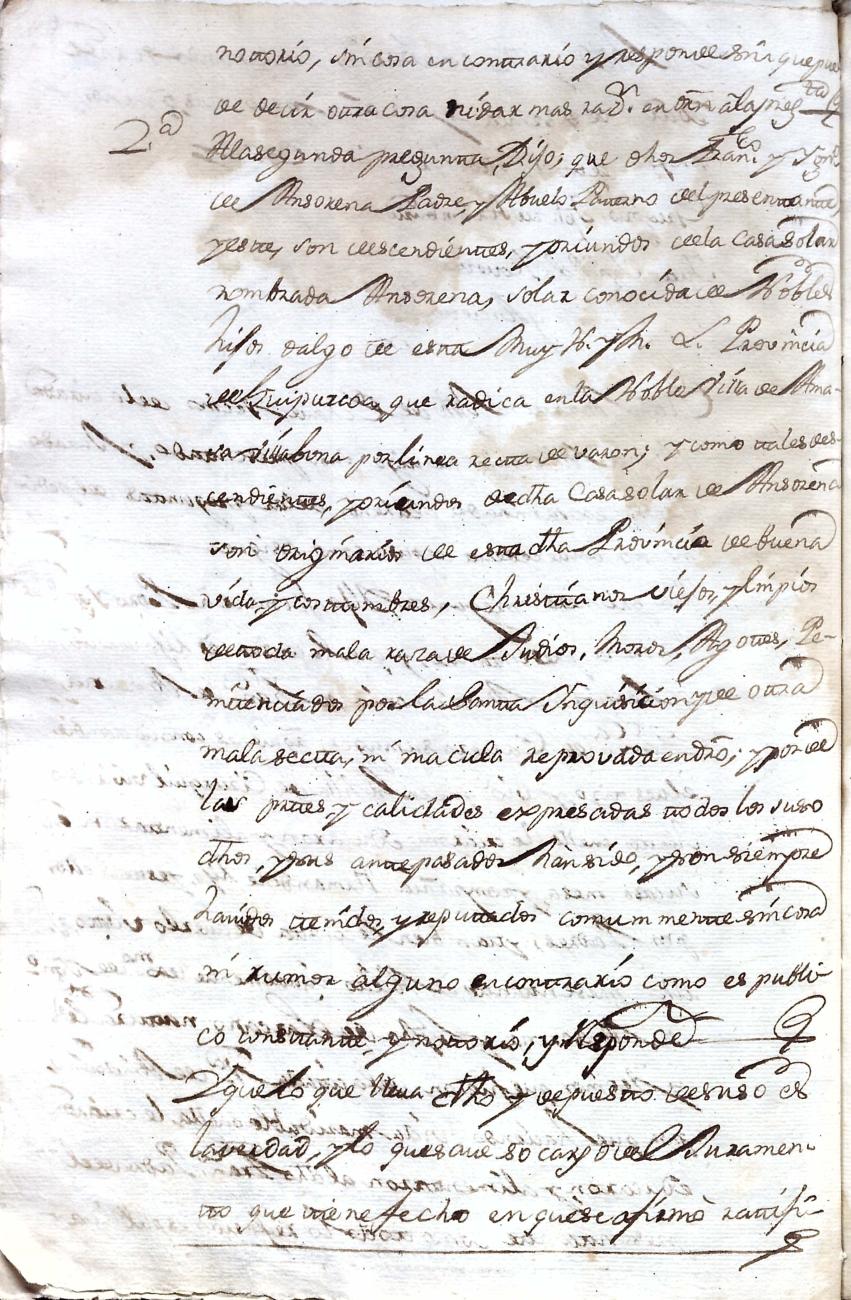 nottorio, sin cosa en conttrario y responde sin que pue-
de decir ottra cosa ni dar mas razn. en orn â la pregta
2.a
A la segunda pregunta, Dijo; que dhos Franco. y
de Ansorena Padre y Abuelo Paterno del presenttante,
y este, son descendienttes, y oriundos de la Casa solar
nombrada Ansorena, solar conocida de Nobles
hijos dalgo de esta Muy N. y M. L. Provincia
de Guipuzcoa que radica en la Noble Villa de Ama-
sa Villabona por linea rectta de varon; y como ttales des-
cendienttes, y oriundos de dha Casa solar de Ansorena
son originarios de esta dha Provincia de buena
vida, y costtumbres, Christtianos viejos, y limpios
de ttoda mala raza de Judios, Moros, Agottes, Pe-
nittenciados por la Santta Inquisicion y de ottra
mala sectta, ni macula reprovada en dro; y por de
las prttes, y calidades expresadas ttodos los suso
dhos, y sus antepasados hân sido, y son siempre
havidos ttenidos, y reputtados comunmentte sin cosa
ni rumor alguno en conttrario como es publi-
co consttantte, y nottorio, y responde
Y que lo que lleva dho y depuestto de suso es
la verdad, y lo que save so cargo del Juramen-
tto que ttiene fecho en que se afirmò rattifi-